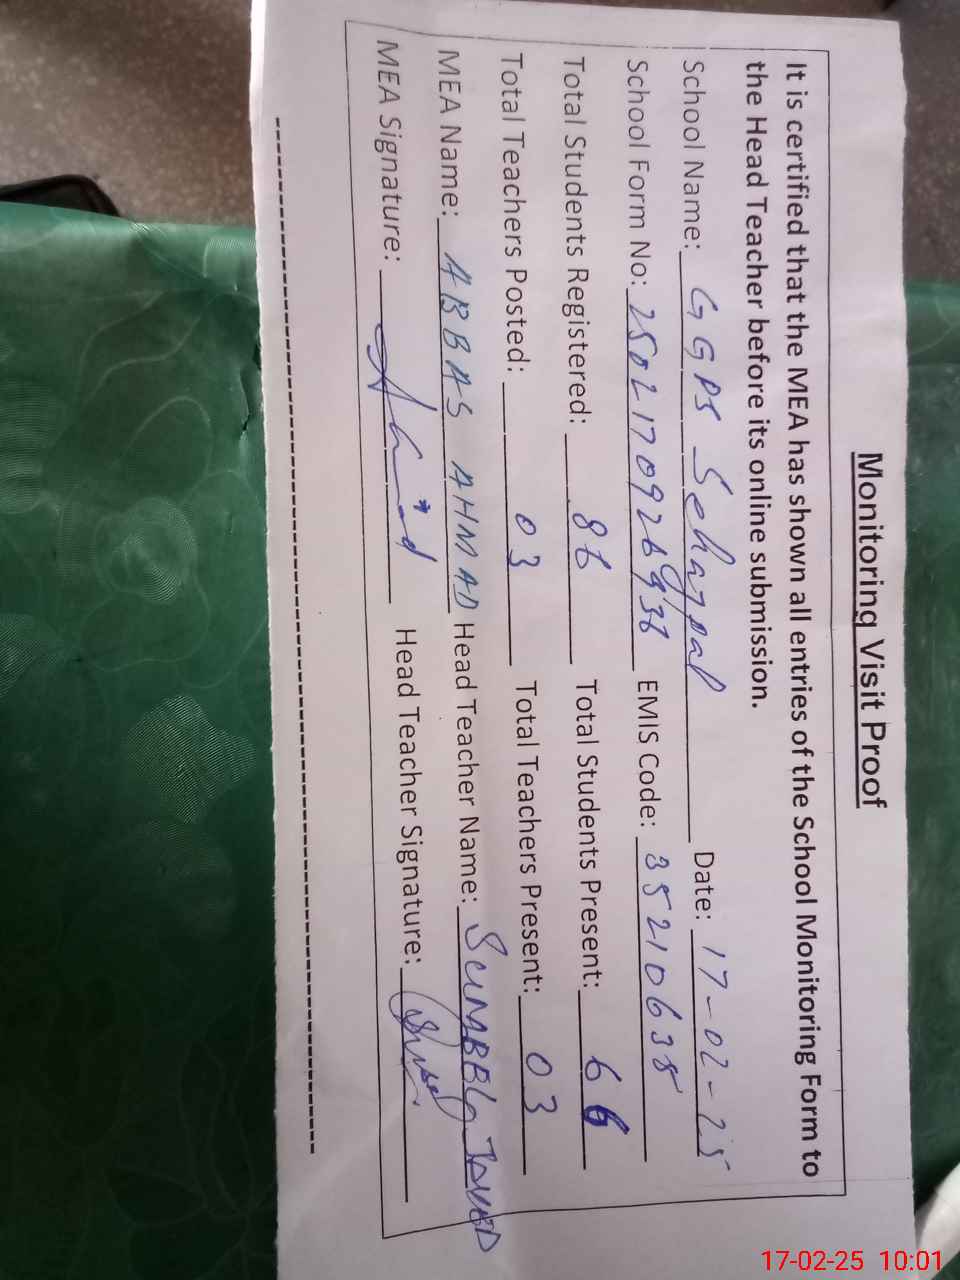 Monitoring Visit Proof
It is certified that the MEA has shown all entries of the School Monitoring Form to
the Head Teacher before its online submission.
School Name: GGPS Sehajpal Date: 17-02-25
School Form No: EMIS Code: 35210638
Total Students Registered: 86 Total Students Present: 66
Total Teachers Posted: 03 Total Teachers Present: 03
MEA Name: ABBAS AHMAD Head Teacher Name:
MEA Signature: Head Teacher Signature:
17-02-25 10:01